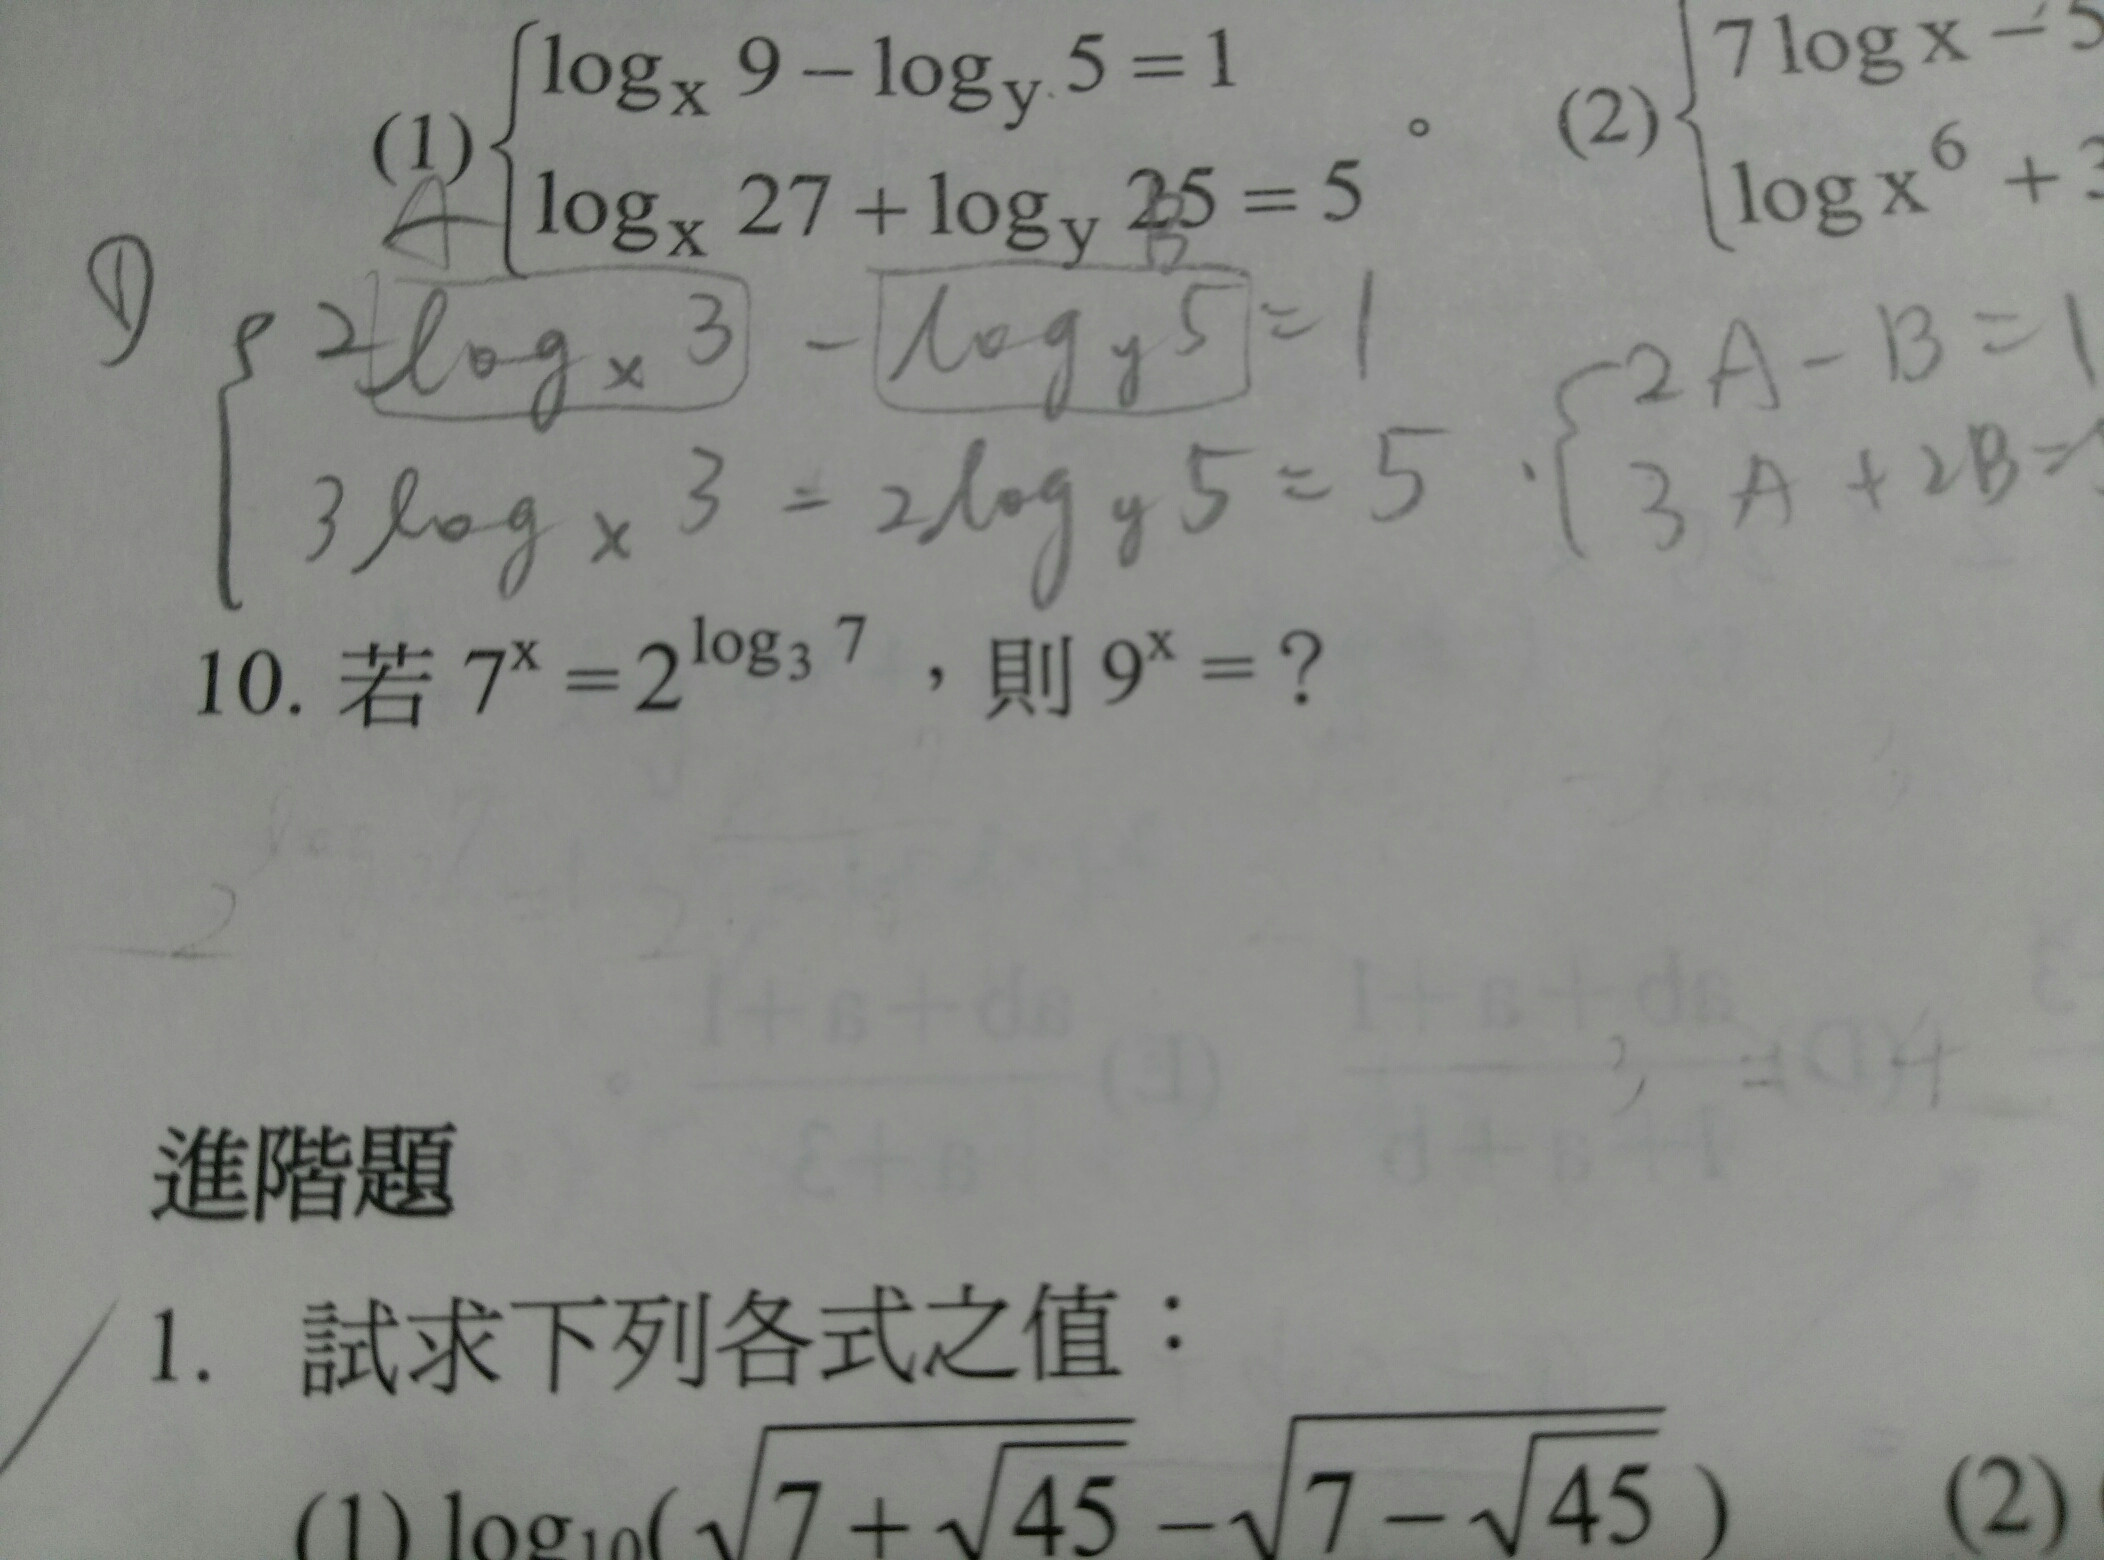 (1) { log_x 9 − log_y 5 = 1
log_x 27 + log_y 25 = 5 。
(2) { 7 log x − 5
log x^6 + 3
A B
① { 2 log_x 3 − log_y 5 = 1
3 log_x 3 = 2 log_y 5 = 5
{ 2A − B = 1
3A + 2B =
10. 若 7^x = 2^{log_3 7} ，則 9^x = ?
進階題
1. 試求下列各式之值：
(1) log_10(√(7 + √45) − √(7 − √45)) (2)